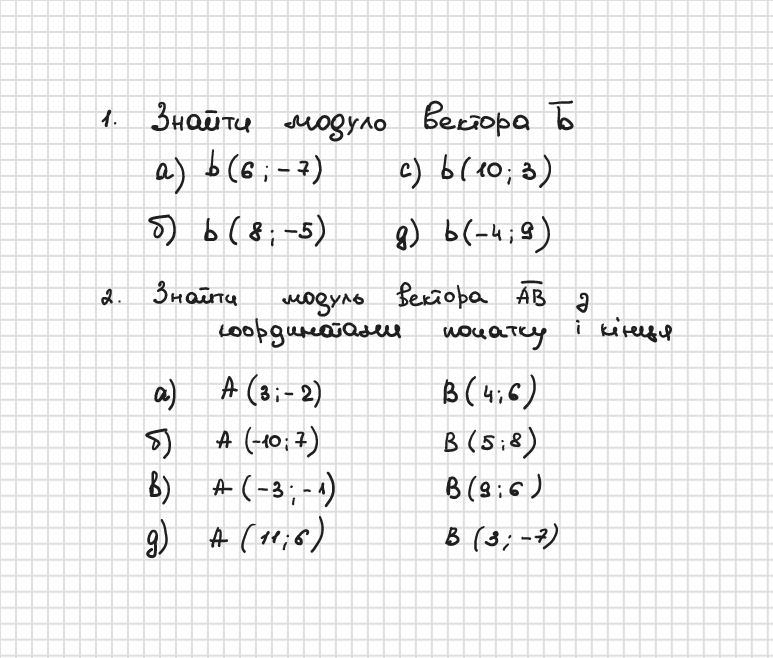 1. Знайти модуло вектора b̅
а) b (6 ; -7) с) b (10 ; 3)
б) b ( 8 ; -5) д) b (-4 ; 9)
2. Знайти модуль вектора A̅B̅ з
координатами початку і кінця
а) A (3 ; -2) B ( 4 ; 6 )
б) A (-10 ; 7) B ( 5 ; 8)
в) A ( -3 ; -1) B (9 ; 6 )
д) A ( 11 ; 6) B ( 3 ; -7)